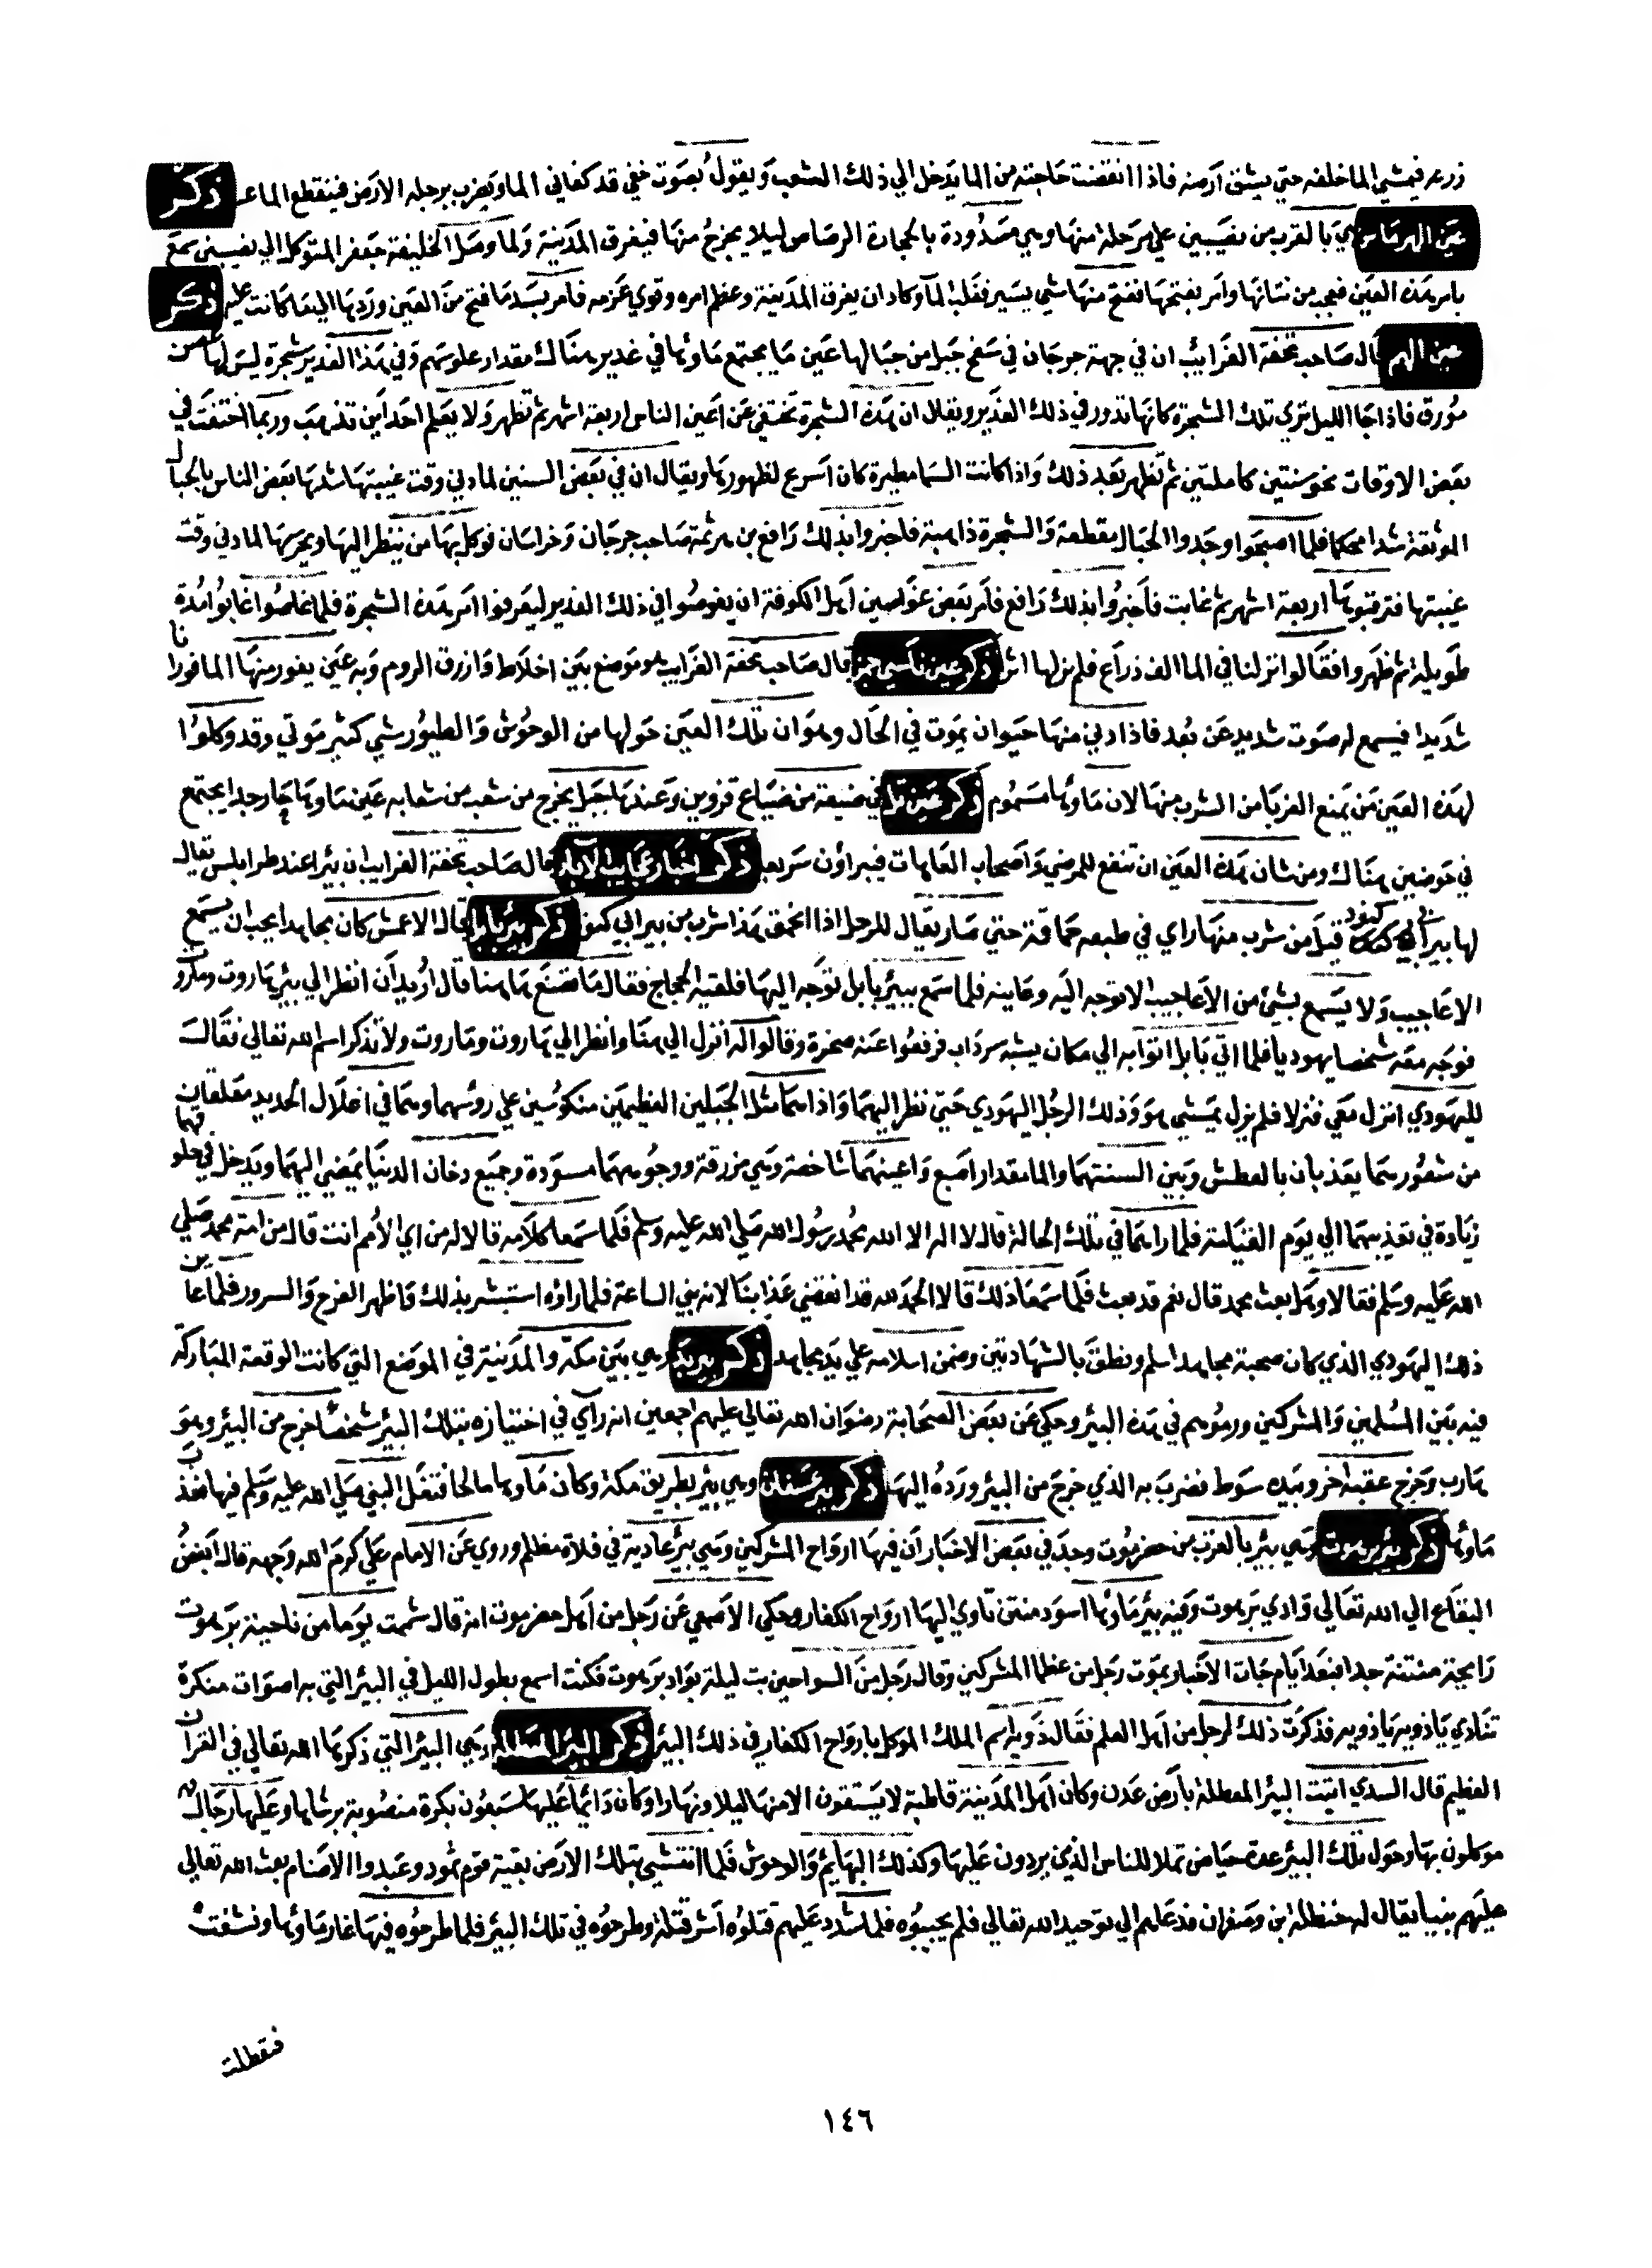 زرعه فيمشي الماخلفه حتي يشق ارضه فاذا انقضت حاجته من الما يدخل الي ذلك الشعب ويقول بصوت خفي قد كفاني الما ويضرب برجله الارض فينقطع الما عنه ذكر
عين الهرماس هي بالقرب من نصيبين علي مرحلة منها وهي مسدودة بالحجارة الرصاص ليلا يخرج منها فيغرق المدينة ولما وصل الخليفة جعفر المتوكل الي نصيبين سمع
بامر هذه العين فعجب من شانها وامر بفتحها ففتح منها شي يسير فغلب الما وكاد ان يغرق المدينة وعظم امره وقوي عزمه فامر بسد ما فتح من العين وردها الي ما كانت عليه ذكر
عين الهم قال صاحب تحفة الغرائب ان في جهة جرجان في سفح جبل من جبالها عين ما يجتمع ماؤها في غدير هناك مقدار علوسهم وفي هذا الغدير شجرة ليس لها غصن
مورق فاذا جا الليل تري تلك الشجرة كانها تدور في ذلك الغدير ويقال ان هذه الشجرة تختفي عن اعين الناس اربعة اشهر ثم تظهر ولا يعلم احد اين تذهب وربما اختفت في
بعض الاوقات نحو سنتين كاملتين ثم تظهر بعد ذلك واذا كانت السما مطيرة كان اسرع لظهورها ويقال ان في بعض السنين لما دني وقت غيبتها شدها بعض الناس بالحبال
الموثقة شدا محكما فلما اصبحوا وجدوا الحبال مقطعة والشجرة ذاهبة فاخبروا بذلك رافع بن هرثمة صاحب جرجان وخراسان فوكل بها من ينظر اليها ويحرسها لما دني وقت
غيبتها فترقبوها اربعة اشهر ثم غابت فاخبروا بذلك رافع فامر بعض غواصين اهل الكوفة ان يغوصوا في ذلك الغدير ليعرفوا امر هذه الشجرة فلما غاصوا غابوا مدة
طويلة ثم ظهروا فقالوا نزلنا في الما الف ذراع فلم نر لها اثر ذكر عين قال صاحب تحفة الغرايب هو موضع بين اخلاط وازرق الروم وبه عين يفور منها الما فورانا
شديدا فيسمع له صوت شديد عن بعد فاذا دني منها حيوان يموت في الحال وهو ان تلك العين حولها من الوحوش والطيور شي كثير موتي وقد وكلوا
لهذه العين من يمنع الغربا من الشرب منها لان ماؤها مسموم ذكر عين في ضيعة من ضياع قزوين وعندها جبل يخرج من شعب من شعابه عين ماوها حار جدا يجتمع
في حوضين هناك ومن شان هذه العين ان تنفع للمرضي واصحاب العاهات فيبراؤن سريعا ذكر اخبار عجايب الابار قال صاحب تحفة الغرايب ان بئرا عند طرابلس يقال
لها بير ابي كنود قيل من شرب منها راي في طبعه حماقة حتي صار يقال للرجل اذا انحمق هذا شرب من بير ابي كنود ذكر بئر بابل قال الاعمش كان مجاهد ايحب ان يسمع
الاعاجيب ولا يسمع بشيء من الاعاجيب الا توجه اليه وعاينه فلما سمع ببئر بابل توجه اليها فلقيه الحجاج فقال ما تصنع هاهنا قال اريد ان انظر الي بئر هاروت وماروت
فوجه معه شخصا يهوديا فلما اتي بابل اتوا به الي مكان يشبه سرداب فرفعوا عنه صخرة وقالوا له انزل الي هنا وانظر الي هاروت وماروت ولا تذكر اسم الله تعالي فقال
لليهودي انزل معي فنزلا فلم يزل يمشي هو وذلك الرجل اليهودي حتي نظر اليهما واذا هما مثل الجبلين العظيمين منكوسين علي روسهما وهما في اغلال الحديد معلقان
من شعورهما يعذبان بالعطش وبين السنتهما والما مقدار اصبع واعينهما شاخصة وهي مزرقة ووجوههما مسودة وجميع دخان الدنيا يمضي اليهما ويدخل في حلوقهما
زيادة في تعذيبهما الي يوم القيامة فلما راهما في تلك الحالة قال لا اله الا الله محمد رسول الله صلي الله عليه وسلم فلما سمعا كلامه قالا له من اي الامم انت قال من امة محمد صلي
الله عليه وسلم فقالا وهل بعث محمد قال نعم قد بعث فلما سمعا ذلك قالا الحمد لله قد انقضي عذابنا لانه نبي الساعة فلما راؤه استبشر بذلك واظهر الفرح والسرور فلما عاين
ذلك اليهودي الذي كان صحبة مجاهد اسلم ونطق بالشهادتين وضمن اسلامه علي يد مجاهد ذكر بير بدر وهي بين مكة والمدينة في الموضع التي كانت الوقعة المباركة
فيه بين المسلمين والمشركين ورموهم في هذه البئر وحكي عن بعض الصحابة رضوان الله تعالي عليهم اجمعين انه راي في اختيازه بتلك البئر شخصا خرج من البئر وهو
هارب وخرج عقبه اخر وبيده سوط فضرب به الذي خرج من البئر ورده اليها ذكر بير عسفان وهي بئر بطريق مكة وكان ماوها مالحا فتفل النبي صلي الله عليه وسلم فيها فعذب
ماؤها ذكر بئر برهوت وهي بئر بالقرب من حضرموت وجد في بعض الاخبار ان فيها ارواح المشركين وهي بئر عادية في فلاة مظلم وروي عن الامام علي كرم الله وجهه قال ابغض
البقاع الي الله تعالي وادي برهوت وفيه بئر ماوها اسود منتن تاوي اليها ارواح الكفار وحكي الاصمعي عن رجل من اهل حضرموت انه قال شممت يوما من ناحية برهوت
رايحة منتنة جدا فبعد ايام جات الاخبار بموت رجل من عظما المشركين وقال رجل من السواحين بت ليلة بواد برهوت فكنت اسمع بطول الليل في البئر التي به اصوات منكرة
تنادي ياذوبه ياذوبه فذكرت ذلك لرجل من اهل العلم فقال ذوبه اسم الملك الموكل بارواح الكفار في ذلك البئر ذكر البئر المعطلة وهي البئر التي ذكرها الله تعالي في القران
العظيم قال السدي اتيت البئر المعطلة بارض عدن وكان اهل المدينة قاطبة لا يستقون الا منها ليلا ونهارا وكان دائما عليها سبعون بكرة منصوبة برشايها وعليها رجال
موكلون بها وحول تلك البئر عدة حياض تملا للناس الذي يردون عليها وكذلك البهايم والوحوش فلما انتشي بتلك الارض بقية قوم ثمود وعبدوا الاصنام بعث الله تعالي
عليهم نبيا يقال له حنظلة ابن وصفوان فدعاهم الي توحيد الله تعالي فلم يجيبوه فلما شدد عليهم قتلوه اشر قتلة وطرحوه في تلك البئر فلما طرحوه فيها غار ماؤها ونشفت
فتعطلت
١٤٦